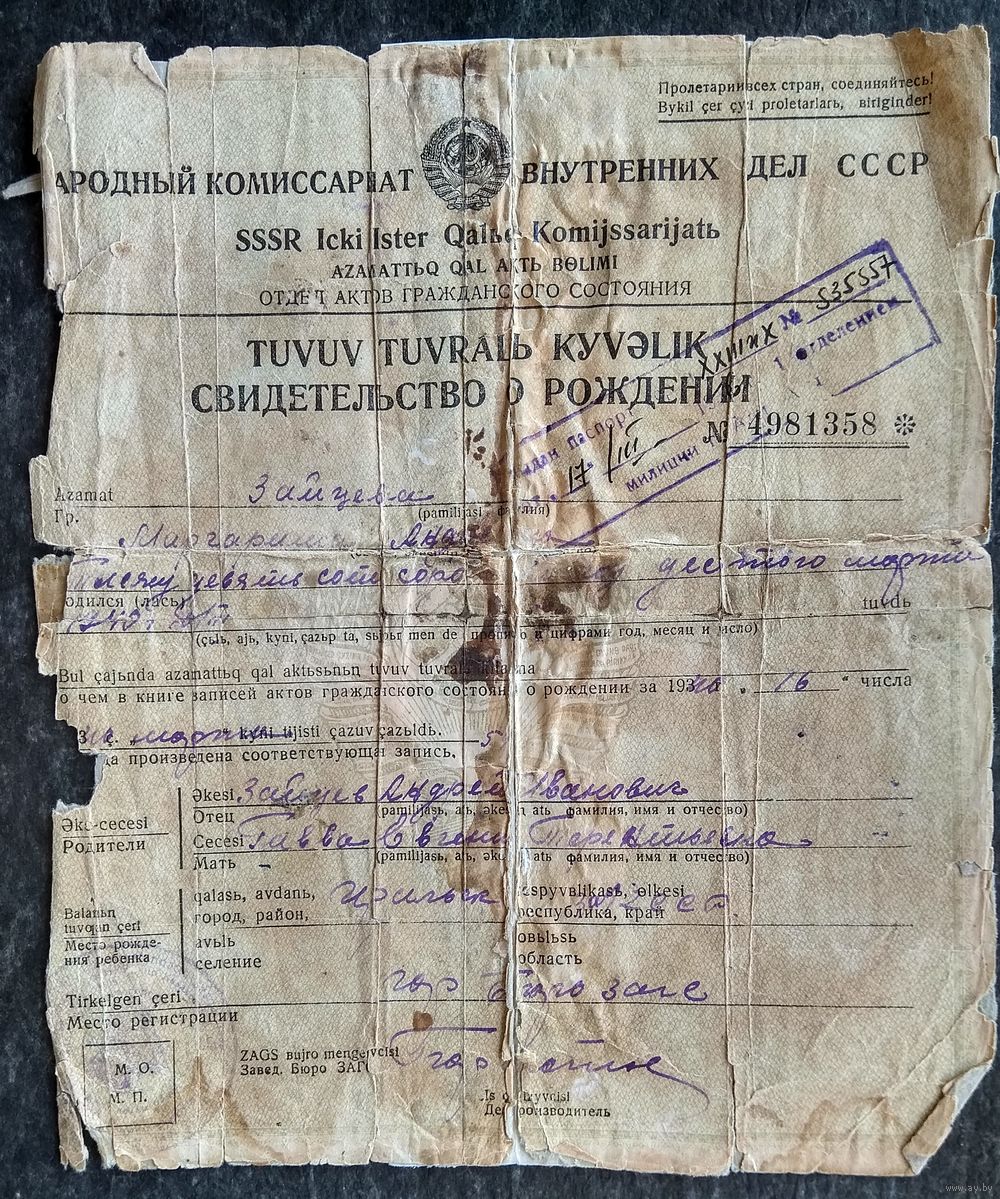 Пролетарии всех стран, соединяйтесь!
Bykil çer çyzi proletarlarь, birigiŋder!
АРОДНЫЙ КОМИССАРИАТ ВНУТРЕННИХ ДЕЛ СССР
SSSR Icki Ister Qalьq Komijssarijatь
AZAMATTЬQ QAL AKTЬ BɵLIMI
ОТДЕЛ АКТОВ ГРАЖДАНСКОГО СОСТОЯНИЯ
TUVUV TUVRALЬ KYVƏLIK
СВИДЕТЕЛЬСТВО О РОЖДЕНИИ
XXIII № 535557
1 отделением
паспорт
17. III
милиции
№ 4981358
Azamat Зайцева
Гр. (pamilijasi фамилия)
Маргарита
девять сот десятого марта
одился (лась) tuvdь
(çьlь, ajь, kyni, çazьp ta, sьpьr men de прописью и цифрами год, месяц и число)
Bul çajьnda azamattьq qal aktьsьnьn tuvuv
о чем в книге записей актов гражданского состояния о рождении за 1940 „ 16 “ числа
марта kyni tijisti çazuv çazьldь.
да произведена соответствующая запись. 5
Əke-cecesi
Родители
Əkesi Зайцев Андрей Иванович
Отец (pamilijasь, atь, əke atь фамилия, имя и отчество)
Cecesi Савва Евгения Терентьевна
Мать (pamilijasь, atь, əke atь фамилия, имя и отчество)
Balanьn tuvqan çeri
Место рождения ребенка
qalasь, avdanь, Уральск espyvвlikasь, ɵlkesi
город, район, республика, край
avьlь
селение область
Tirkelgen çeri гор Бюро загс
Место регистрации
M. O.
М. П.
ZAGS bujro mengeryvcisi
Завед. Бюро ЗАГС
Делопроизводитель
www.ay.by